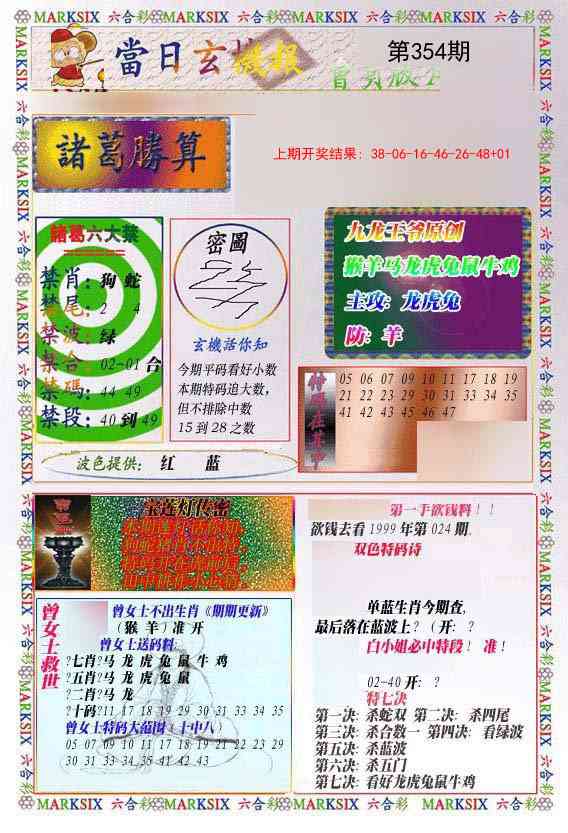 MARKSIX 六合彩 MARKSIX 六合彩 MARKSIX 六合彩 MARKSIX 六合彩
當日玄
第354期
諸葛勝算
上期开奖结果: 38-06-16-46-26-48+01
諸葛六大禁
禁肖: 狗 蛇
禁尾: 2 4
禁波: 绿
禁合: 02-01 合
禁碼: 44 49
禁段: 40 到 49
密圖
玄機活你知
今期平码看好小数
本期特码追大数,
但不排除中数
15 到 28 之数
九龙王爷原创
猴羊马龙虎兔鼠牛鸡
主攻: 龙虎兔
防: 羊
特碼在其中
05 06 07 09 10 11 17 18 19
21 22 23 29 30 31 33 34 35
41 42 43 45 46 47
波色提供: 红 蓝
宝莲灯传密
曾女士救世
曾女士不出生肖《期期更新》
(猴 羊) 准 开
曾女士送码料:
?七肖?马 龙 虎 兔 鼠 牛 鸡
?五肖?马 龙 虎 兔 鼠
?二肖?马 龙
?十码?11 17 18 19 29 30 31 33 34 35
曾女士特码大范围 (十中八)
05 06 07 09 10 11 17 18 19 21 22 23 29
30 31 33 34 35 41 42 43
第一手欲钱料!!
欲钱去看 1999 年第 024 期.
双色特码诗
单蓝生肖今期查,
最后落在蓝波上? (开: ?
白小姐必中特段! 准!
02-40 开: ?
特七决
第一决: 杀蛇双 第二决: 杀四尾
第三决: 杀合数一 第四决: 看绿波
第五决: 杀蓝波
第六决: 杀五门
第七决: 看好龙虎兔鼠牛鸡
MARKSIX 六合彩 MARKSIX 六合彩 MARKSIX 六合彩 MARKSIX 六合彩